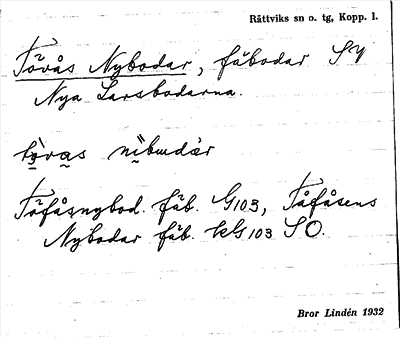 Rättviks sn o. tg, Kopp. l.
Tövås Nybodar, fäbodar SV
Nya Larsbodarna.
tø̀vas nìbωdàr
Töfåsnybod. fäb. G103, Tåfåsens
Nybodar fäb. kG103 SO.
Bror Lindén 1932